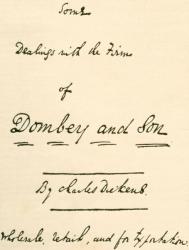 Some
Dealings with the Firm
of
Dombey and Son
By Charles Dickens.
Wholesale, Retail, and for Exportation.